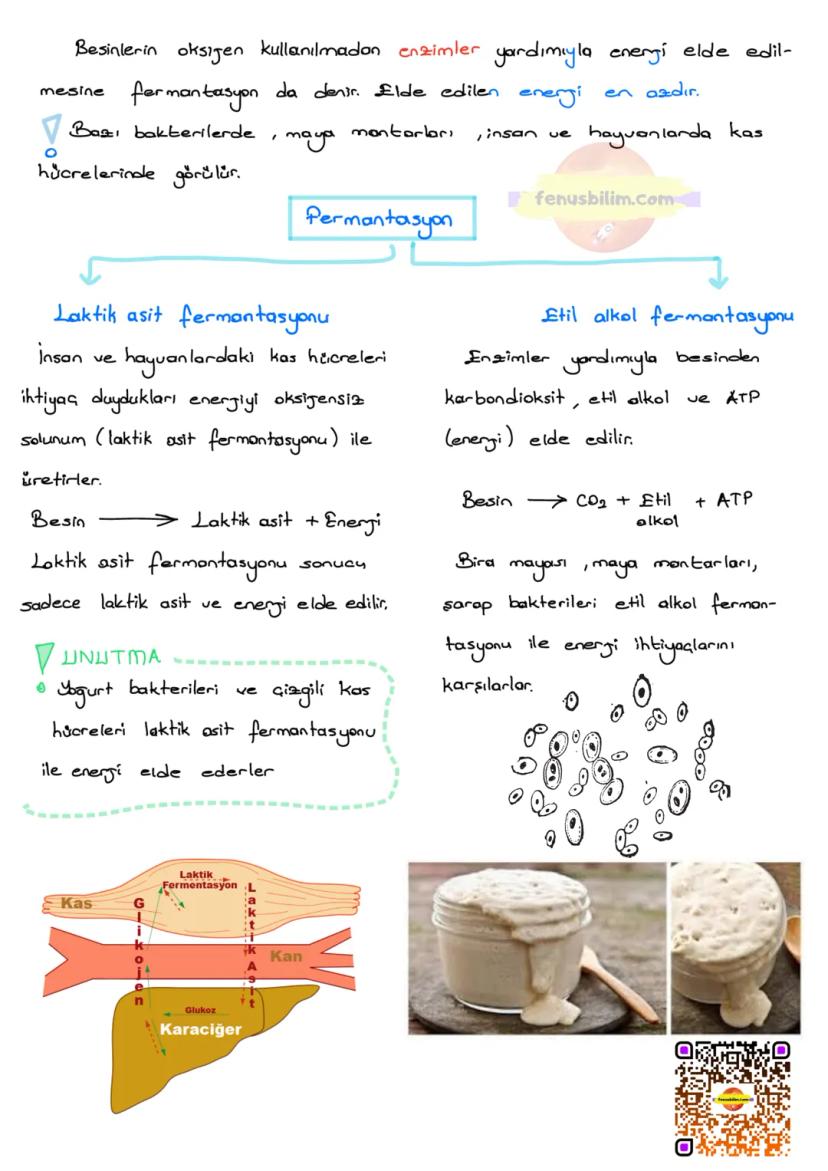 Besinlerin oksijen kullanılmadan enzimler yardımıyla enerji elde edil-
mesine fermantasyon da denir. Elde edilen enerji en azdır.
Bazı bakterilerde , maya mantarları , insan ve hayvanlarda kas
hücrelerinde görülür.
fenusbilim.com
Fermantasyon
Laktik asit fermantasyonu
İnsan ve hayvanlardaki kas hücreleri
ihtiyaç duydukları enerjiyi oksijensiz
solunum (laktik asit fermantasyonu) ile
üretirler.
Besin → Laktik asit + Enerji
Laktik asit fermantasyonu sonucu
sadece laktik asit ve enerji elde edilir.
UNUTMA
Yogurt bakterileri ve çizgili kas
hücreleri laktik asit fermantasyonu
ile enerji elde ederler
Etil alkol fermantasyonu
Enzimler yardımıyla besinden
karbondioksit , etil alkol ve ATP
(enerji) elde edilir.
Besin → CO₂ + Etil + ATP
alkol
Bira mayası , maya mantarları,
şarap bakterileri etil alkol ferman-
tasyonu ile enerji ihtiyaçlarını
karşılarlar.
Laktik
Fermentasyon
Kas
Glikojen
Laktik Asit
Kan
Glukoz
Karaciğer
fenusbilim.com